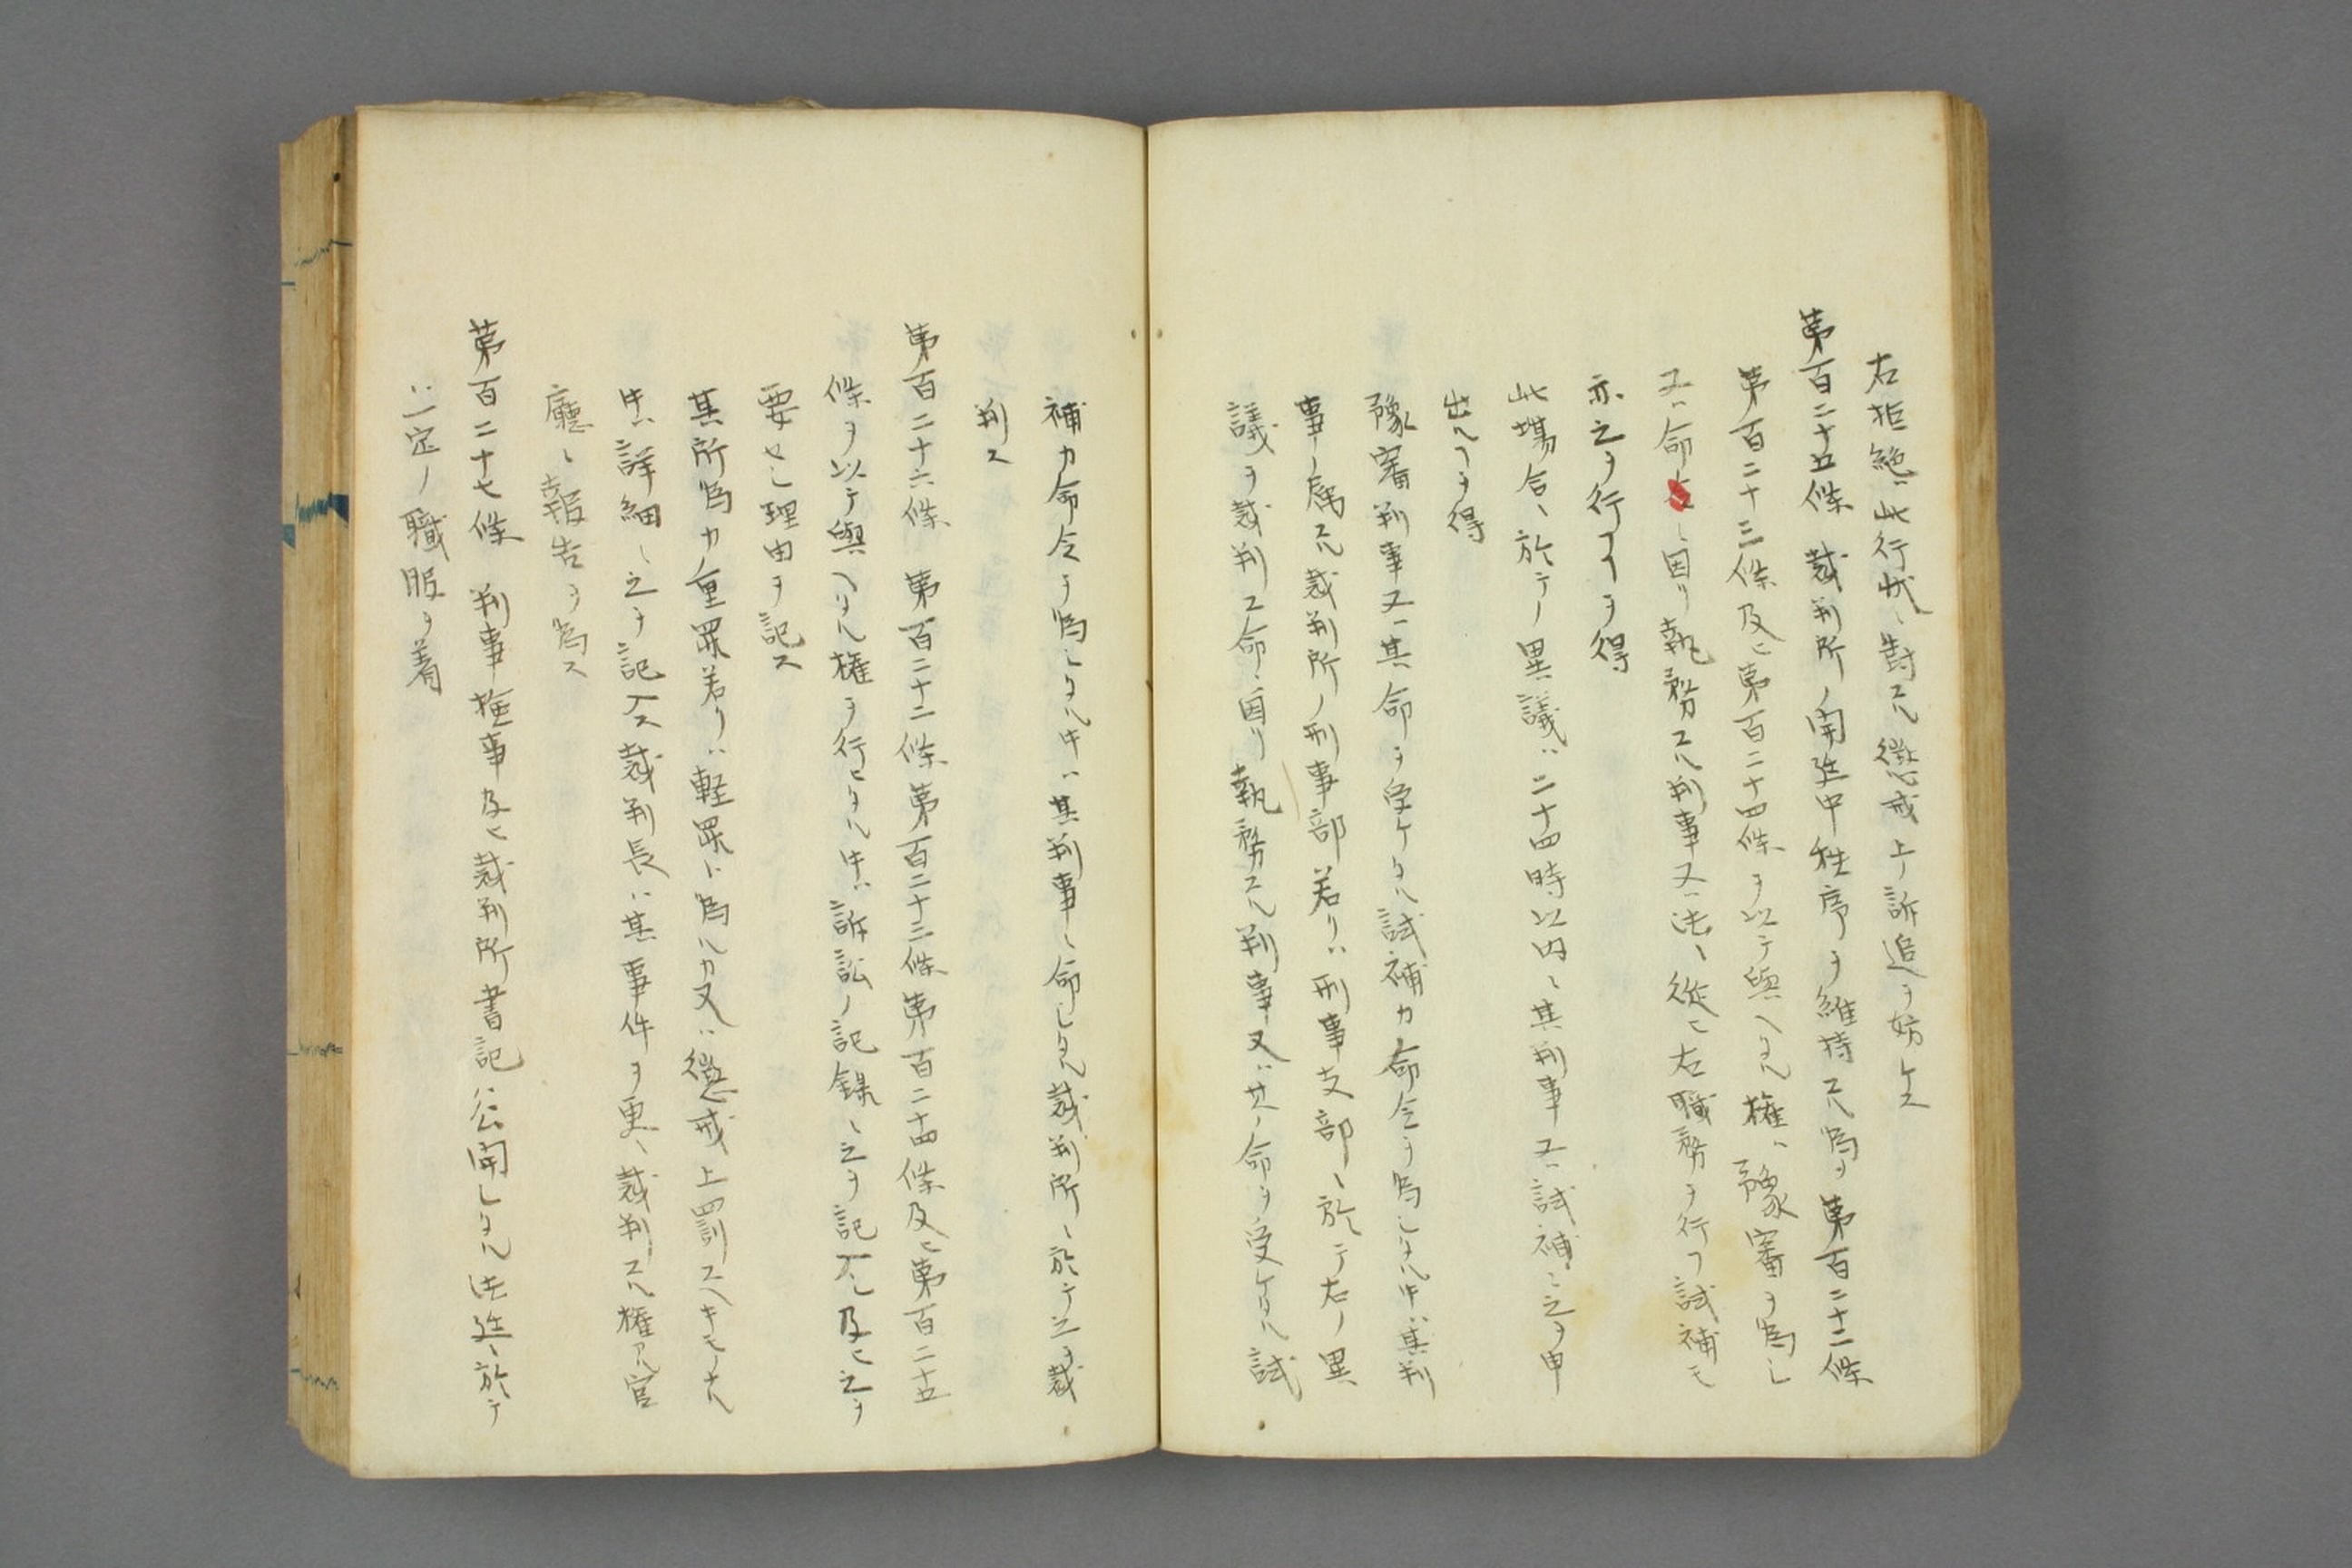 右拒絶ハ此行状ニ對スル懲戒上ノ訴追ヲ妨ケス
第百二十五條 裁判所ノ開廷中秩序ヲ維持スル為ヲ第百二十二條
第百二十三條及ヒ第百二十四條ヲ以テ與ヘタル權ハ豫審ヲ為シ
又ハ命ニ因リ執務スル判事又ハ法ニ從ヒ右職務ヲ行フ試補モ
亦之ヲ行フヿヲ得
此塲合ニ於テノ異議ハ二十四時以内ニ其判事又ハ試補ニ之ヲ申
出ルヿヲ得
豫審判事又ハ其命ヲ受ケタル試補カ命令ヲ為シタル中ハ其判
事ノ属スル裁判所ノ刑事部若クハ刑事支部ニ於テ右ノ異
議ヲ裁判ス命ニ因リ執務スル判事又ハ其ノ命ヲ受ケタル試
補カ命令ヲ為シタル中ハ其判事ニ命シタル裁判所ニ於テ之ヲ裁
判ス
第百二十六條 第百二十二條第百二十三條第百二十四條及ヒ第百二十五
條ヲ以テ與ヘタル權ヲ行ヒタル中ハ訴訟ノ記録ニ之ヲ記入シ及ヒ之ヲ
要セシ理由ヲ記ス
其所為カ重罪若クハ軽罪ト為ルカ又ハ懲戒上罰スヘキモノナル
中ハ詳細ニ之ヲ記入ス裁判長ハ其事件ヲ更ニ裁判スル權アル官
廳ニ報告ヲ為ス
第百二十七條 判事撿事及ヒ裁判所書記ハ公開シタル法廷ニ於テ
ハ一定ノ職服ヲ着